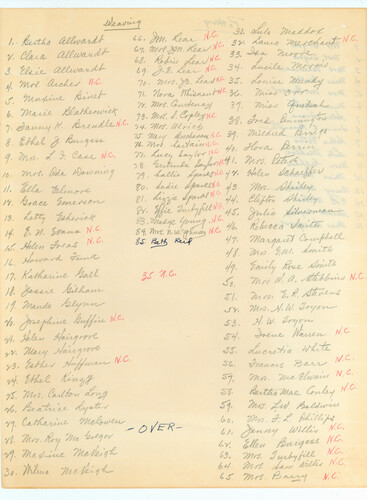 Weaving
1. Bertha Allwardt
2. Clara Allwardt
3. Elsie Allwardt
4. Mrs Archer N.C.
5. Maxine Bivet
6. Marie Blatherwick
7. Fanny K. Brendle N.C.
8. Ethel J Burgess
9. Mrs. L. F. Case N.C.
10. Mrs. Ada Downing
11. Ella Filmore
12. Grace Emerson
13. Letty Esherick
14. E. N. Evans N.C.
15. Helen Freas N.C.
16. Howard Funk
17. Katharine Gail
18. Jessie Gilham
19. Maude Glynn
20. Josephine Guffin N.C.
21. Helen Hairgrove
22. Mary Hairgrove
23. Esther Hoffman N.C.
24. Ethel
25. Mrs. Carlton Long
26. Beatrice Lyster
27. Catharine McGowen
28. Mrs. Roy McGregor
29. Maxine McVeigh
30. Velma McVeigh
66. Jim Kear N.C.
67. Mrs. Jim Kear N.C.
68. Robin N.C.
69. J. I. N.C.
70. Mrs. J. I.
71. Nora N.C.
72. Mrs.
73. Mrs. S. Copley N.C.
74. Mrs. Ulrich
75. Mary N.C.
76. Mrs. N.C.
77. Lucy Taylor N.C.
78. Gertrude Taylor N.C.
79. Lottie N.C.
80. Sadie N.C.
81. Lizzie N.C.
82. Effie Turbyfill N.C.
83. Young N.C.
84. Mrs. Young N.C.
85. Beth Reid
25 N.C.
-OVER-
31. Lula Maddox
32. Laura Merchant N.C.
33. Ina Moore
34. Lucile Morris
35. Louise Mundy
36. Miss Orr
37. Miss
38. Ford Burrington
39. Mildred
40. Flora
41. Mrs. Peters
42. Helen Schaeffer
43. Mrs. Shirley
44. Clifton Shirley
45. Julia Silverman
46. Rebecca Smith
47. Margaret Campbell
48. Mrs. E.W. Smith
49. Emily Rose Smith
50. Mrs A. A. Stebbins N.C.
51. Mrs. E. R. Stevens
52. Mrs. H. W. Toyon
53. H. W. Toyon
54. Irene Warren N.C.
55. Lucretia White
56. Frances Barr N.C.
57. Mrs. McElwain N.C.
58. Bertha Mac Conley N.C.
59. Mrs. Leo Baldwin
60. Mrs. F. L Phillips
61. Jenny Willis N.C.
62. Ellen Burgess N.C.
63. Mrs. Turbyfill N.C.
64. Mrs. Sam Willis N.C.
65. Mrs Barry N.C.